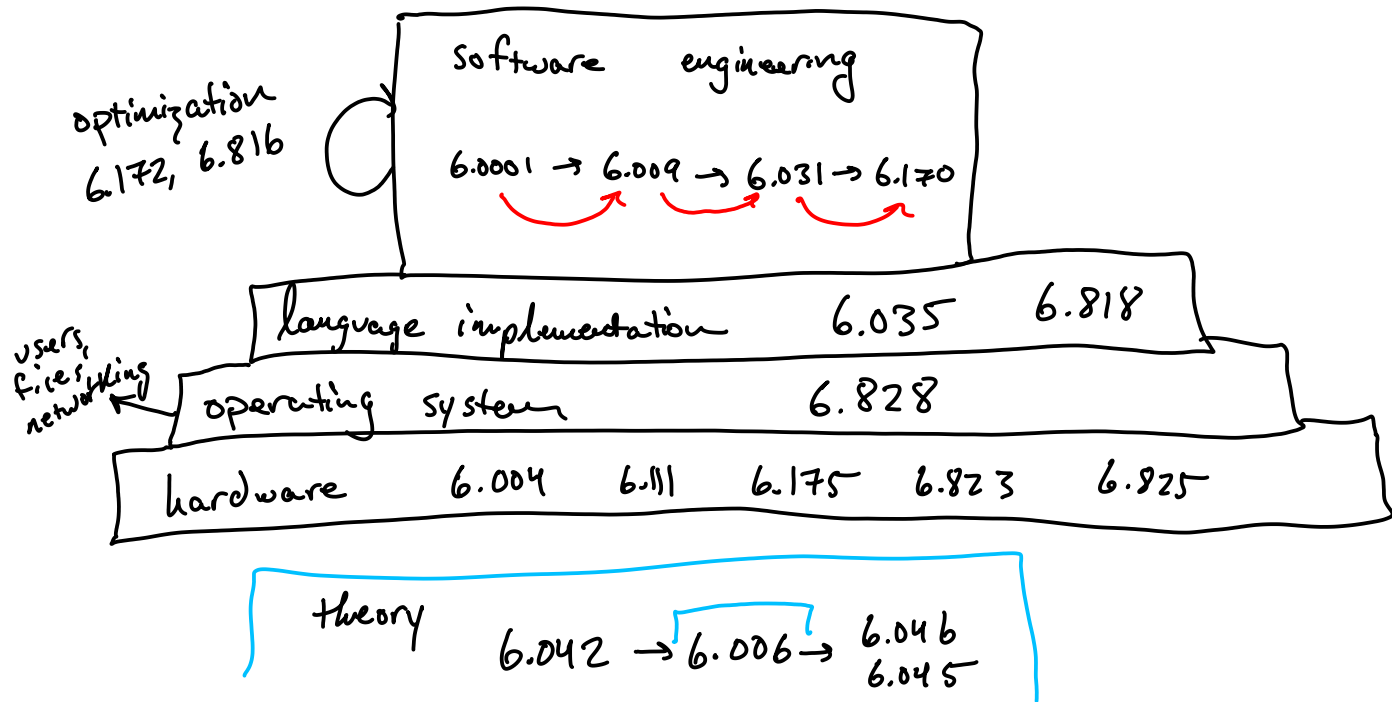 software engineering
optimization
6.172, 6.816
6.0001 → 6.009 → 6.031 → 6.170
language implementation 6.035 6.818
users,
files,
networking
operating system 6.828
hardware 6.004 6.111 6.175 6.823 6.825
theory
6.042 → 6.006 → 6.046
6.045